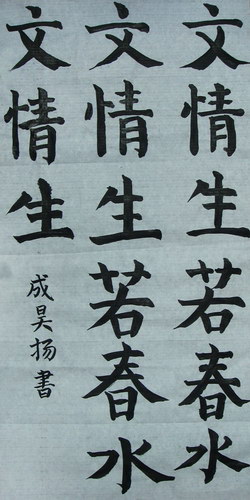 文情生若春水
文情生若春水
文情生
成昊扬书